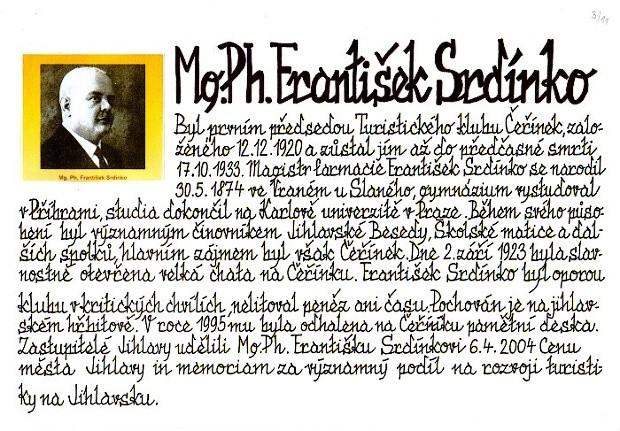 3/11
Mg.Ph. František Srdínko
Mg. Ph. František Srdínko
Byl prvním předsedou Turistického klubu Čeřínek, zalo-
ženého 12.12.1920 a zůstal jím až do předčasné smrti
17.10.1933. Magistr farmacie František Srdínko se narodil
30.5.1874 ve Vraném u Slaného, gymnázium vystudoval
v Příbrami, studia dokončil na Karlově univerzitě v Praze. Během svého půso-
bení byl významným činovníkem Jihlavské Besedy, Školské matice a dal-
ších spolků, hlavním zájmem byl však Čeřínek. Dne 2. září 1923 byla slav-
nostně otevřena velká chata na Čeřínku. František Srdínko byl oporou
klubu v kritických chvílích, nelitoval peněz ani času. Pochován je na jihlav-
ském hřbitově. V roce 1995 mu byla odhalena na Čeřníku pamětní deska.
Zastupitelé Jihlavy udělili Mg.Ph. Františku Srdínkovi 6.4.2004 Cenu
města Jihlavy in memoriam za významný podíl na rozvoji turisti-
ky na Jihlavsku.